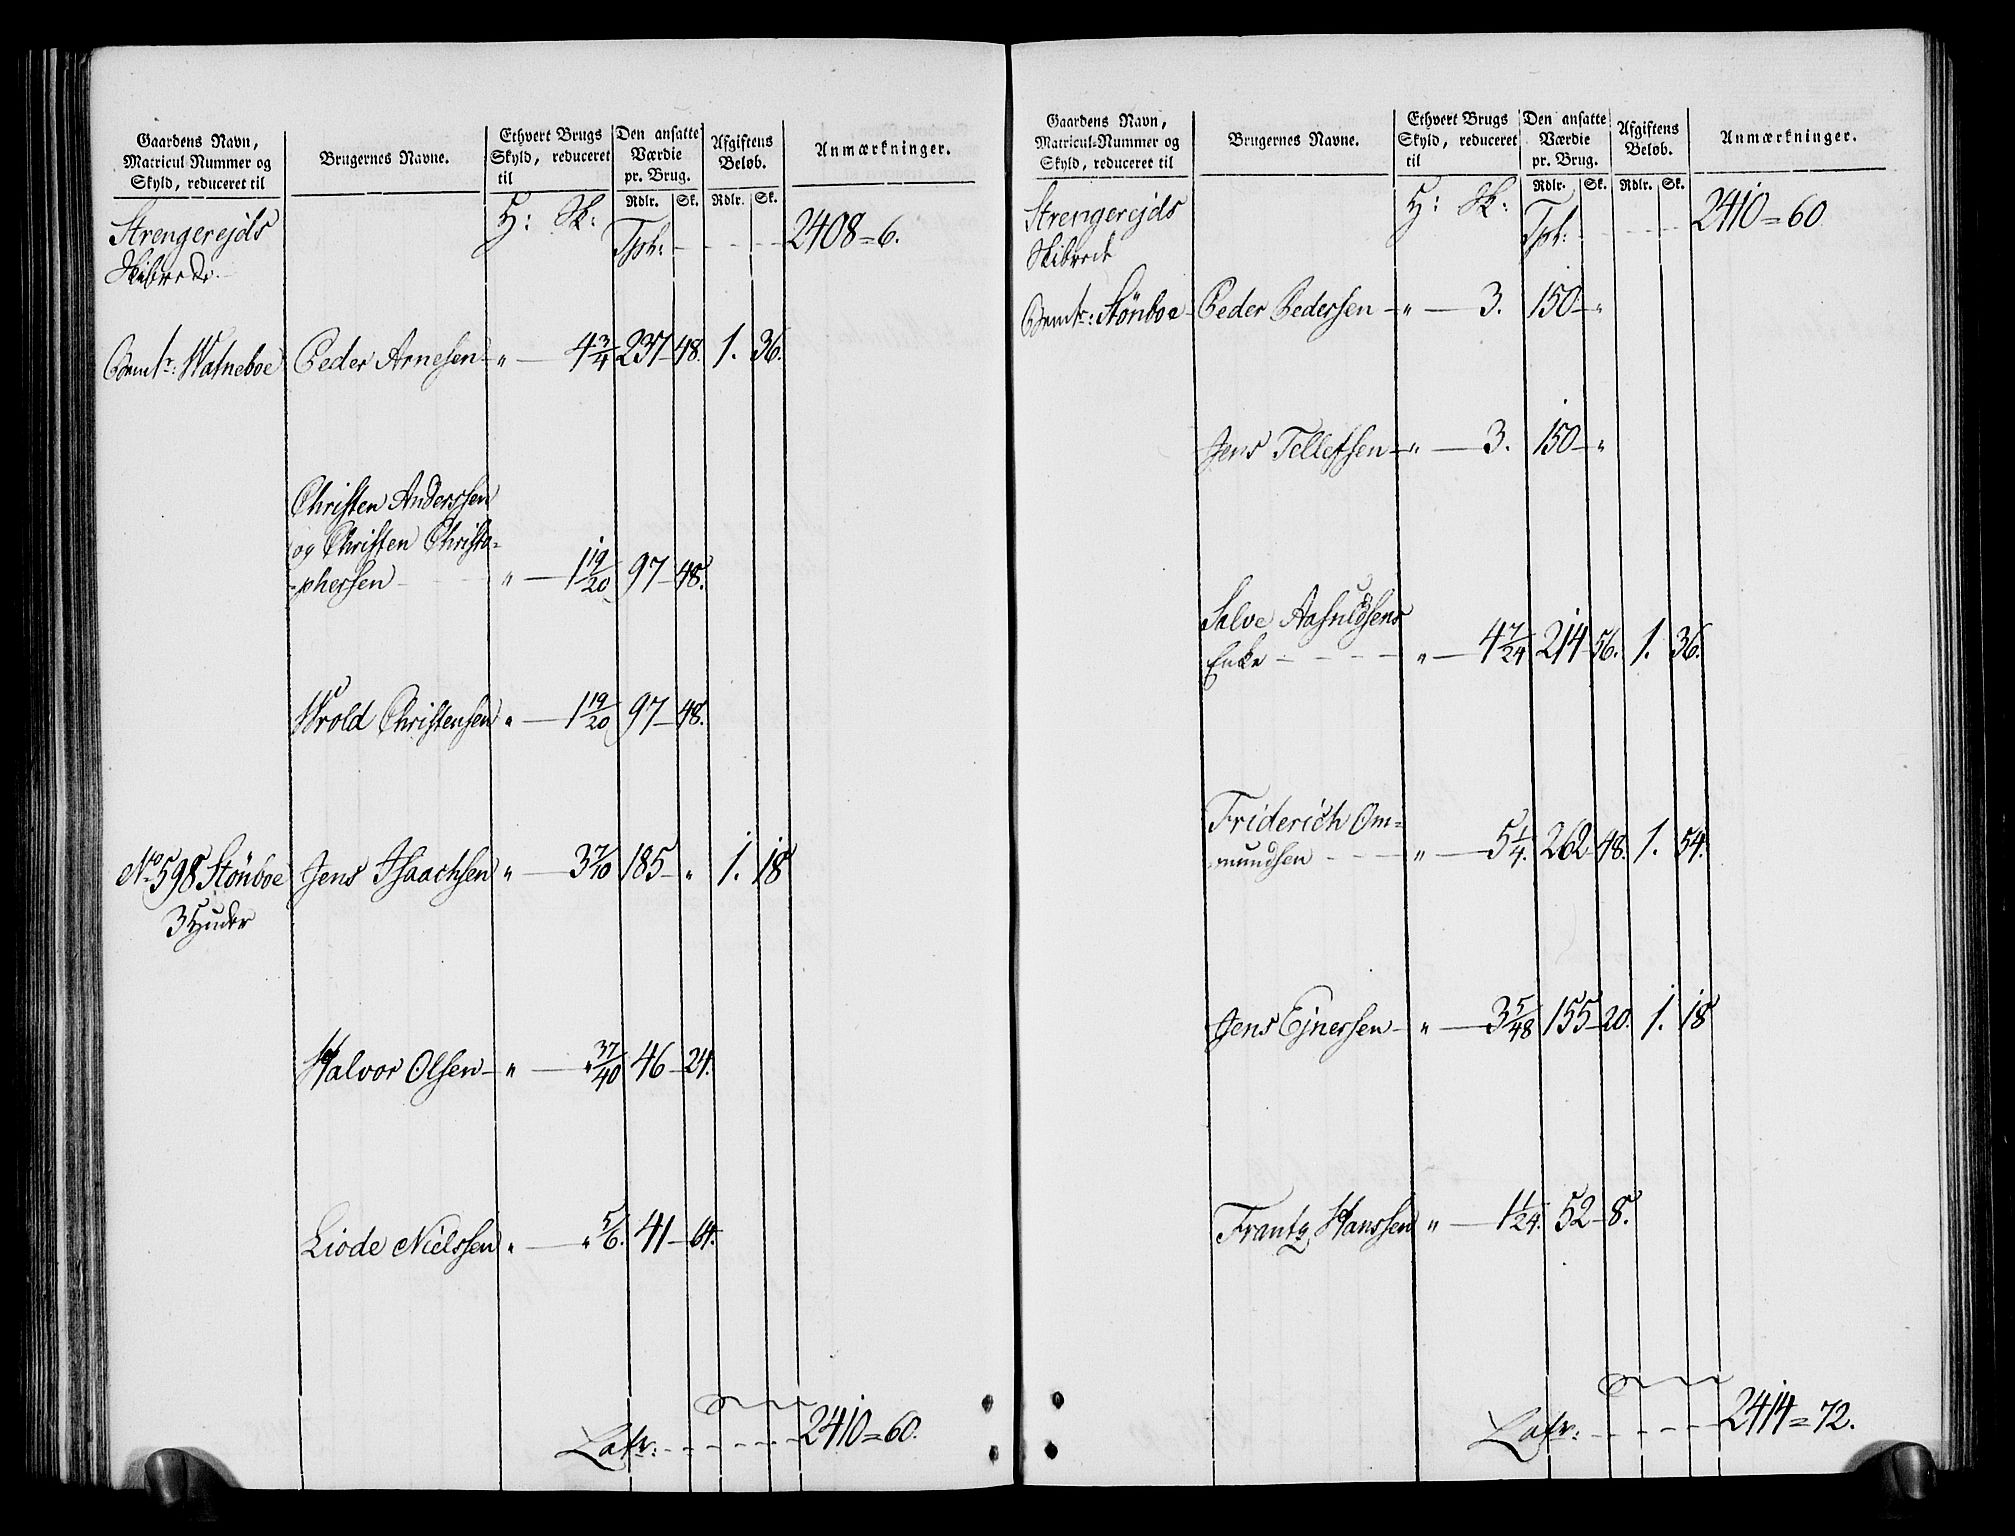 Gaardens Navn,
Matricul-Nummer og
Skyld, reduceret til
Brugernes Navne.
Ethvert Brugs
Skyld, reduceret
til
Den ansatte
Værdie
pr. Brug.
Rdlr. Sk.
Afgiftens
Beløb.
Rdlr. Sk.
Anmærkninger.
Strengerejds
Skibrede
H: Sk:
Tpt: - - - - 2408=6.
Peder Arnesen - " - 4 3/4 237 - 48. 1. 36.
Christen Anderssen
og Christen Christo-
-phersen - " - 1 19/20 97 - 48.
Wrold Christensen " - 1 19/20 97 - 48.
No 598 Stönboe Jens Isaachsen " - 3 7/10 185 - " 1. 18
3 Huder
Halvor Olsen - " - " 37/40 46 - 24.
Liode Nielssen " - " 5/6. 41 - 64.
Latr: - - - - 2410=60.
Gaardens Navn,
Matricul-Nummer og
Skyld, reduceret til
Brugernes Navne.
Ethvert Brugs
Skyld, reduceret
til
Den ansatte
Værdie
pr. Brug.
Rdlr. Sk.
Afgiftens
Beløb.
Rdlr. Sk.
Anmærkninger.
Strengerejds
Skibrede
H: Sk:
Tpt: - - - - 2410=60
Stönboe - Peder Pedersen - " - 3. 150 - "
Jens Tellefsen - " - 3. 150 - "
Salve Aasuldsens
Enke - - - - " - 4 7/24 214 - 56. 1. 36.
Friderich Om=
mundsen - - - " - 5 1/4. 262 - 48. 1. 54.
Jens Ejnersen - " - 3 5/48 155 - 20. 1. 18
Frantz Hanssen " - 1 1/24. 52 - 8.
Latr: - - - - 2414=72.